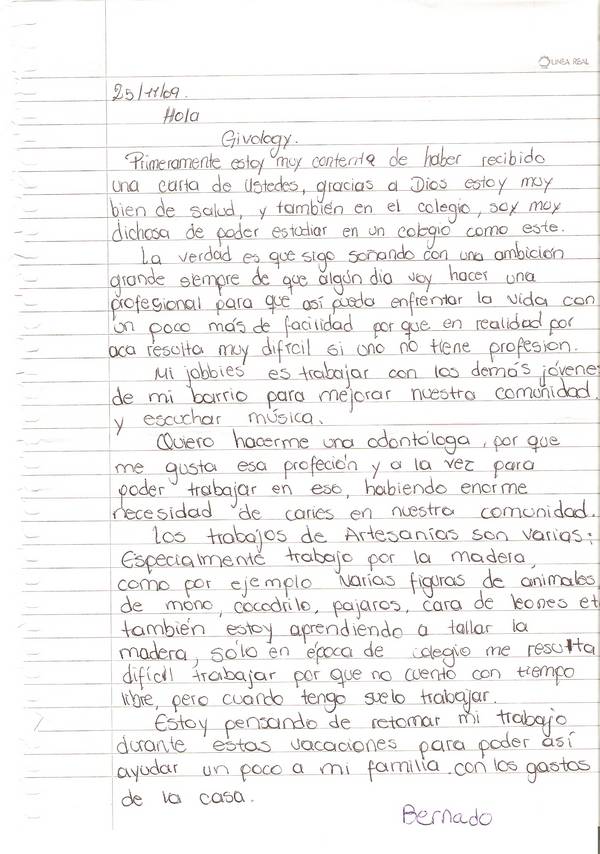 LINEA REAL
25/11/09.
Hola
Givology.
Primeramente estoy muy contenta de haber recibido
una carta de Ustedes, gracias a Dios estoy muy
bien de salud, y también en el colegio, soy muy
dichosa de poder estudiar en un colegio como este.
La verdad es que sigo soñando con una ambición
grande siempre de que algún dia voy hacer una
profesional para que así pueda enfrentar la vida con
un poco más de facilidad por que en realidad por
aca resulta muy difícil si uno no tiene profesion.
Mi jobbies es trabajar con los demás jóvene
de mi barrio para mejorar nuestra comunidad.
y escuchar música.
Quiero hacerme una odontóloga, por que
me gusta esa profeción y a la vez para
poder trabajar en eso, habiendo enorme
necesidad de caries en nuestra comunidad.
Los trabajos de Artesanías son varias:
Especialmente trabajo por la madera,
como por ejemplo varias figuras de animales
de mono, cocodrilo, pajaros, cara de leones et
también estoy aprendiendo a tallar la
madera, sólo en época de colegio me resulta
difícil trabajar por que no cuento con tiempo
libre, pero cuando tengo suelo trabajar.
Estoy pensando de retomar mi trabajo
durante estas vacaciones para poder así
ayudar un poco a mi familia con los gastos
de la casa.
Bernado